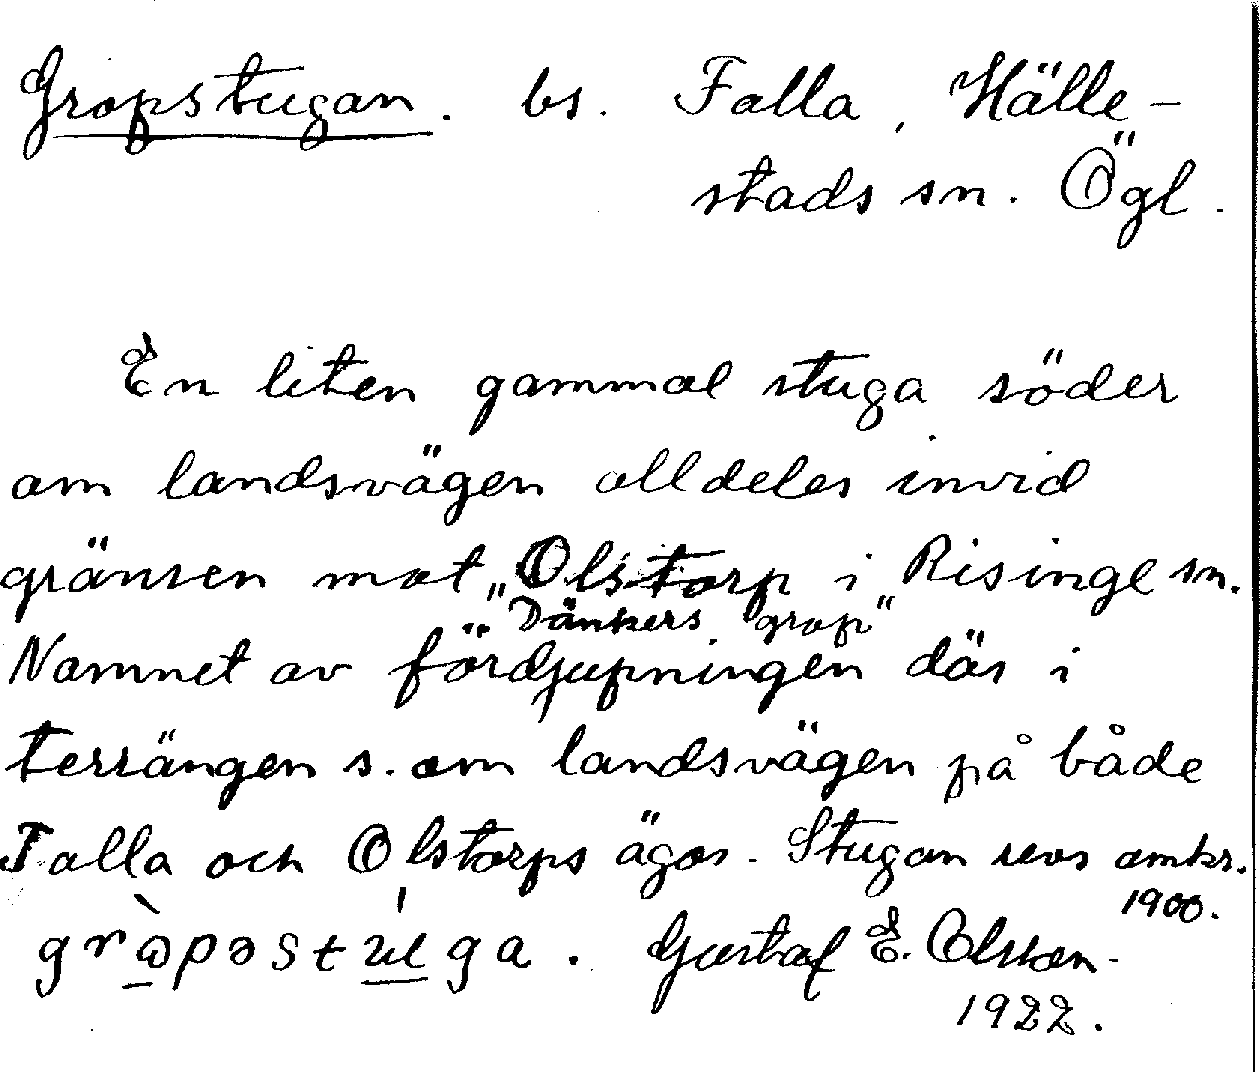 Gropstugan. bs. Falla, Hälle-
stads sn. Ögl.
En liten gammal stuga söder
om landsvägen alldeles invid
gränsen mot Olstorp i Risinge sn.
"Dänkers grop"
Namnet av fördjupningen där i
terrängen s. om landsvägen på både
Falla och Olstorps ägor. Stugan revs omkr.
1900.
grɷ̀pəstúga. Gustaf E. Olsson.
1922.